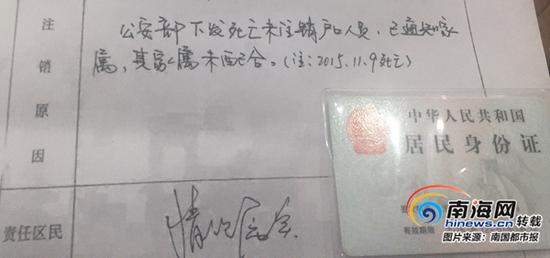 注销原因
公安部下发死亡未注销户口人员,已通知家
属,其家属未配合。(注:2015.11.9死亡)
中华人民共和国
居民身份证
有效期限
责任区民
南海网 转载
hinews.cn
图片来源:南国都市报